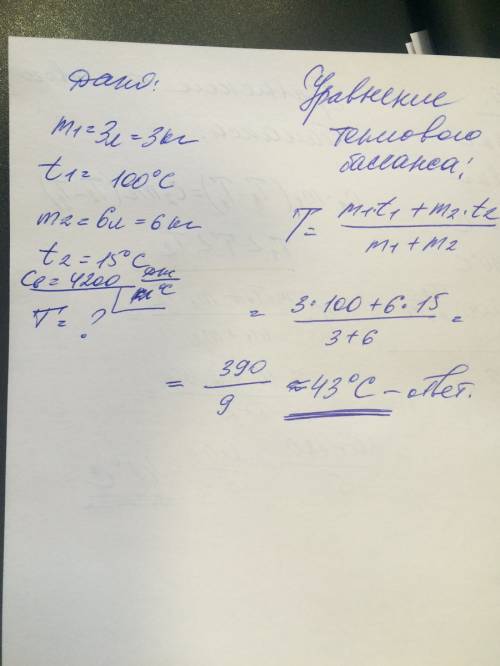 Дано:
m1 = 3л = 3кг
t1 = 100°C
m2 = 6л = 6 кг
t2 = 15°C
Cв = 4200 Дж/кг°C
T = ?
Уравнение
теплового
баланса:
T = m1·t1 + m2·t2 / m1 + m2
= 3·100 + 6·15 / 3+6 =
= 390 / 9 ≈ 43°C – ответ.